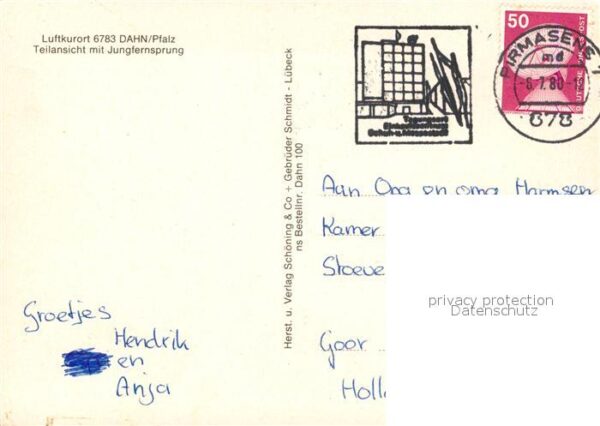 Luftkurort 6783 DAHN/Pfalz
Teilansicht mit Jungfernsprung
Groetjes
Hendrik
en
Anja
Herst. u. Verlag Schöning & Co + Gebrüder Schmidt - Lübeck
ns Bestellnr. Dahn 100
50
DEUTSCHE BUNDESPOST
PIRMASENS 1
md
-8.7.80-
678
Tagungsort
Einkaufszentrum
Schuh-u.Messestadt
Aan Opa en oma Harmsen
Kamer
Stoeve
Goor
Holl
privacy protection
Datenschutz